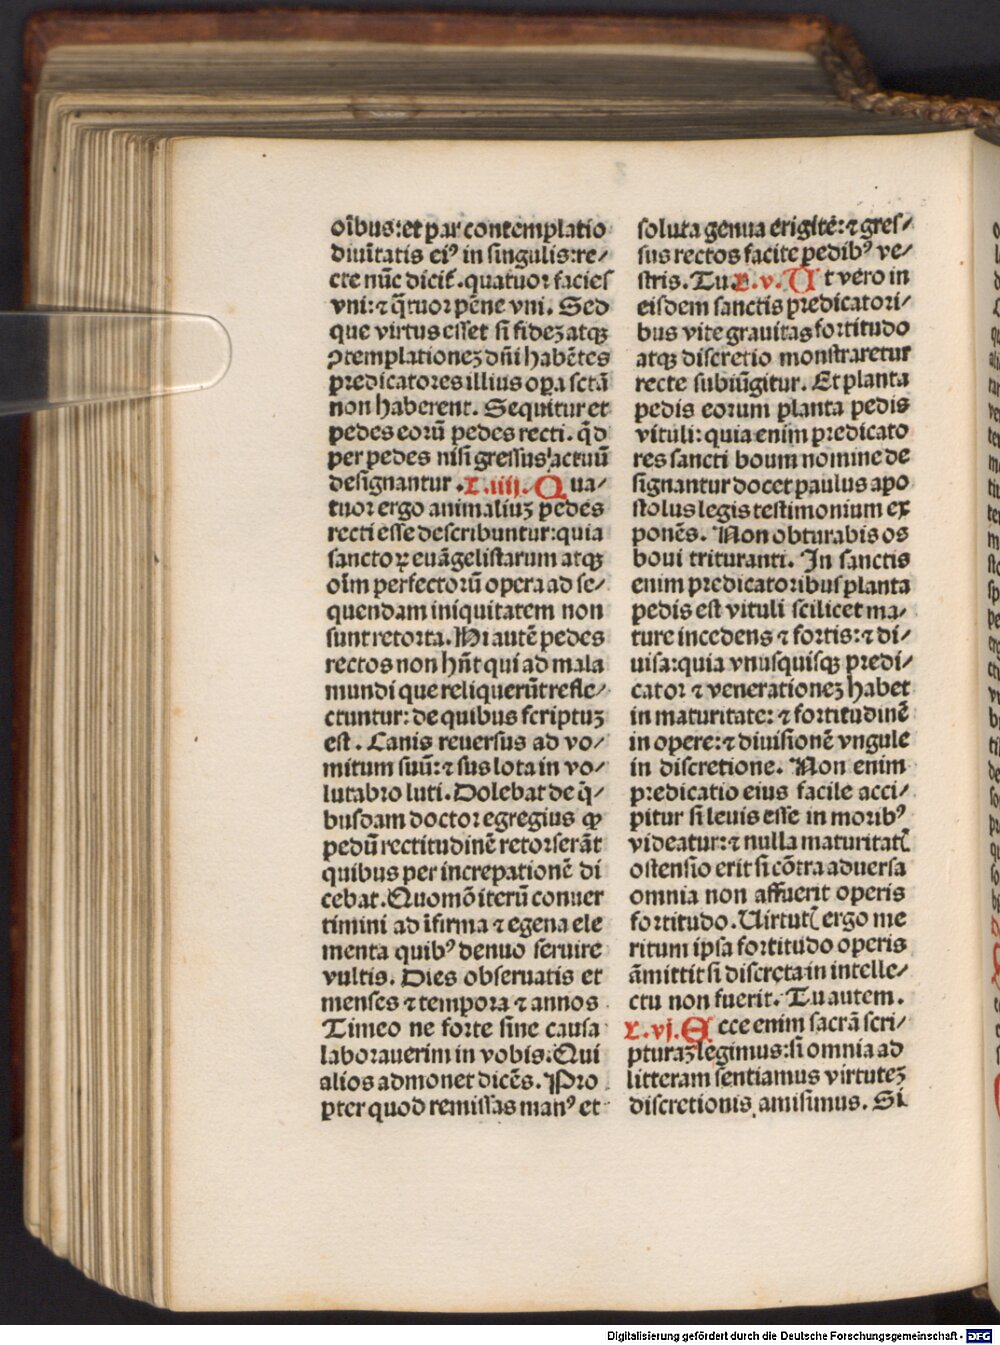 oı̄bus: et par contemplatio
diuı̄tatis eiꝰ in singulis: re-
cte nūc dicit̄. quatuor facies
vni: ⁊ q̄tuor pēne vni. Sed
que virtus esset si fideꝫ atqꝫ
ꝯtemplationeꝫ dn̄i habētes
predicatores illius oꝑa sctā
non haberent. Sequitur et
pedes eorū pedes recti. qͥd
per pedes nisi gressus actuū
designantur. L. iiij. Qua-
tuor ergo animaliuꝫ pedes
recti esse describuntur: quia
sanctoꝝ euāgelistarum atqꝫ
oı̄m perfectorū opera ad se-
quendam iniquitatem non
sunt retorta. Hi autē pedes
rectos non hn̄t qui ad mala
mundi que reliquerūt refle-
ctuntur: de quibus scriptuꝫ
est. Canis reuersus ad vo-
mitum suū: ⁊ sus lota in vo-
lutabro luti. Dolebat de q̄-
busdam doctor egregius ꝙ
pedū rectitudinē retorserāt
quibus per increpationē di
cebat. Quomō iterū conuer
timini ad īfirma ⁊ egena ele
menta quibꝰ denuo seruire
vultis. Dies obseruatis et
menses ⁊ tempora ⁊ annos
Timeo ne forte sine causa
laborauerim in vobis. Qui
alios admonet dicēs. Pro
pter quod remissas manꝰ et
soluta genua erigite: ⁊ gres-
sus rectos facite pedibꝰ ve-
stris. Tu. L. v. Ut vero in
eisdem sanctis predicatori-
bus vite grauitas fortitudo
atqꝫ discretio monstraretur
recte subiūgitur. Et planta
pedis eorum planta pedis
vituli: quia enim predicato
res sancti boum nomine de
signantur docet paulus apo
stolus legis testimonium ex
ponēs. Non obturabis os
boui trituranti. In sanctis
enim predicatoribus planta
pedis est vituli scilicet ma-
ture incedens ⁊ fortis: ⁊ di-
uisa: quia vnusquisqꝫ predi-
cator ⁊ venerationeꝫ habet
in maturitate: ⁊ fortitudinē
in opere: ⁊ diuisionē vngule
in discretione. Non enim
predicatio eius facile acci-
pitur si leuis esse in moribꝰ
videatur: ⁊ nulla maturitatꝭ
ostensio erit si cōtra aduersa
omnia non affuerit operis
fortitudo. Uirtutꝭ ergo me
ritum ipsa fortitudo operis
āmittit si discreta in intelle-
ctu non fuerit. Tu autem.
L. vj. Ecce enim sacrā scri-
pturaꝫ legimus: si omnia ad
litteram sentiamus virtuteꝫ
discretionis amisimus. Si
Digitalisierung gefördert durch die Deutsche Forschungsgemeinschaft - DFG